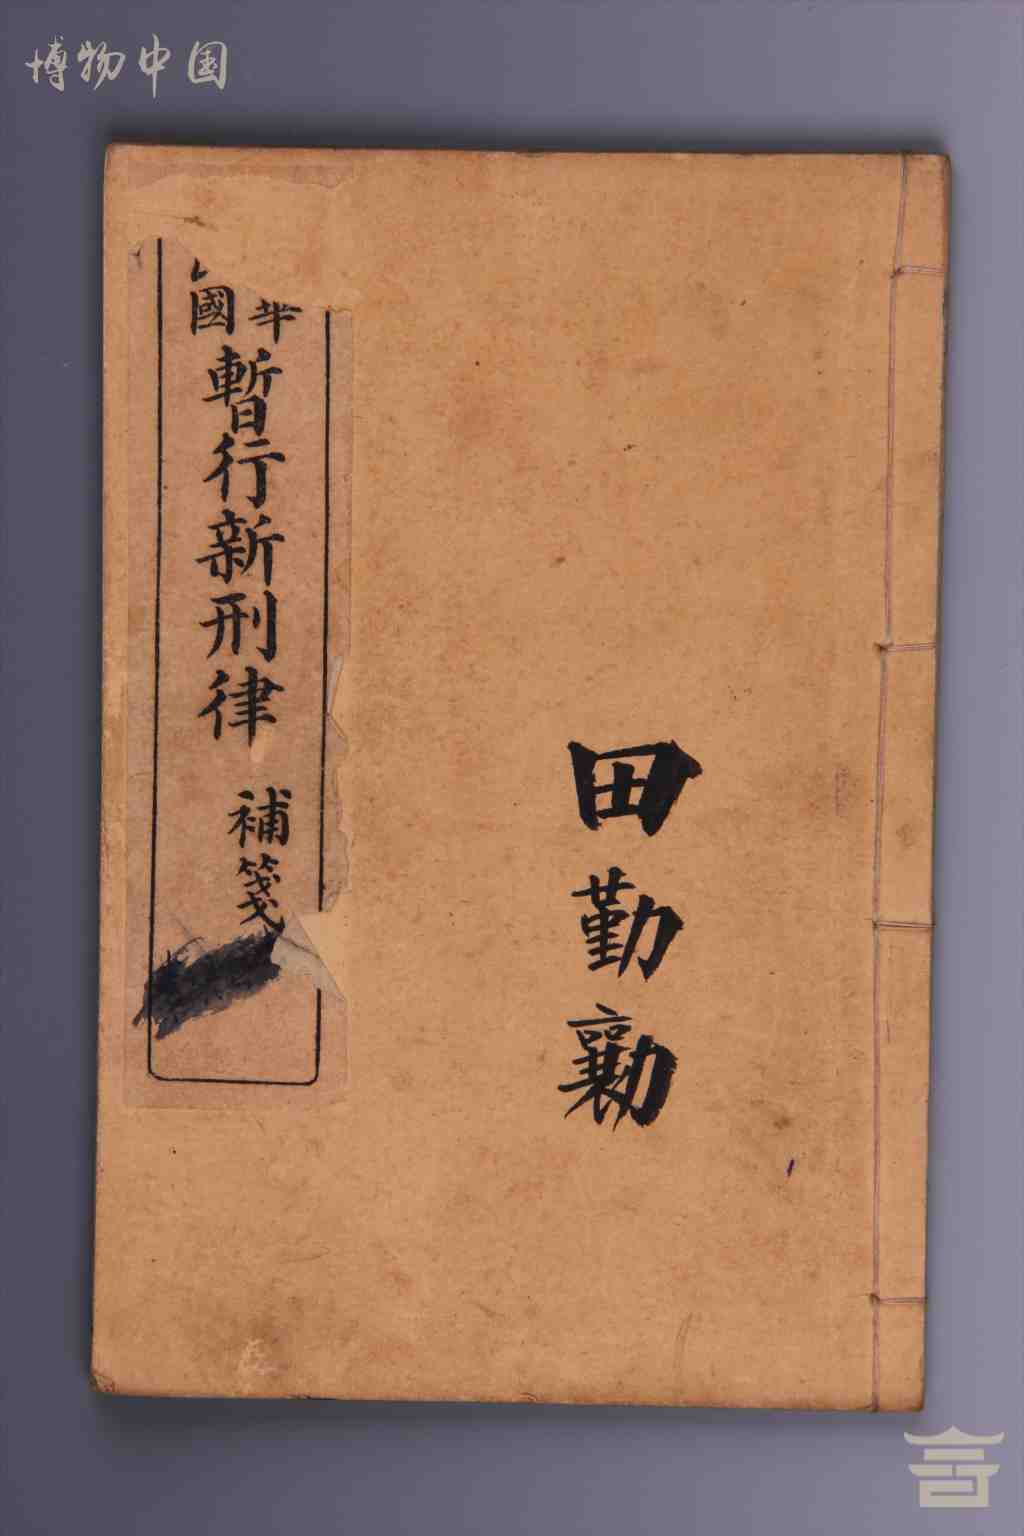 博物中国
田勤勷
華
國
暫行新刑律
補箋